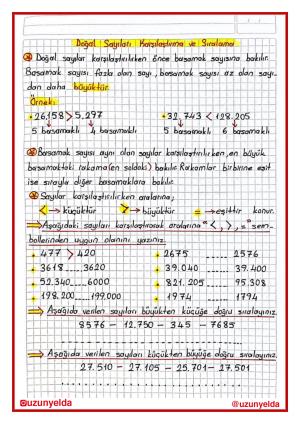 Doğal Sayıları Karşılaştırma ve Sıralama
Doğal sayılar karşılaştırılırken önce basamak sayısına bakılır.
Basamak sayısı fazla olan sayı, basamak sayısı az olan sayı-
dan daha büyüktür.
Örnek:
26.158 > 5.297 32.743 < 128.205
5 basamaklı 4 basamaklı 5 basamaklı 6 basamaklı
Basamak sayısı aynı olan sayılar karşılaştırılırken, en büyük
basamaktaki rakama (en soldaki) bakılır. Rakamlar birbirine eşit
ise sırayla diğer basamaklara bakılır.
Sayılar karşılaştırılırken aralarına;
< → küçüktür > → büyüktür = → eşittir konur.
Aşağıdaki sayıları karşılaştırarak aralarına "<, >, =" sem-
bollerinden uygun olanını yazınız.
477 > 420 2675 ...... 2576
3618 .... 3620 39.040 ...... 39.400
52.340 .... 6000 821.205 ...... 95.308
198.200 .... 199.000 1974 ...... 1794
Aşağıda verilen sayıları büyükten küçüğe doğru sıralayınız.
8576 - 12.750 - 345 - 7685
Aşağıda verilen sayıları küçükten büyüğe doğru sıralayınız.
27.510 - 27.105 - 25.701 - 27.501
@uzunyelda @uzunyelda